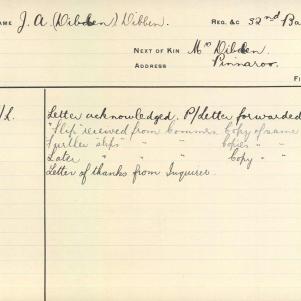 AME J. A. (Dibden) Dibben. REG. &C 52nd Ba
NEXT OF KIN Mrs Dibden,
ADDRESS Pinnaroo.
FI
/L. Letter acknowledged. P/Letter forwarded
"Flip" received from Commrs. Copy of same
Further slips " " Copies " "
Later " " " Copy " "
Letter of thanks from Inquirer.